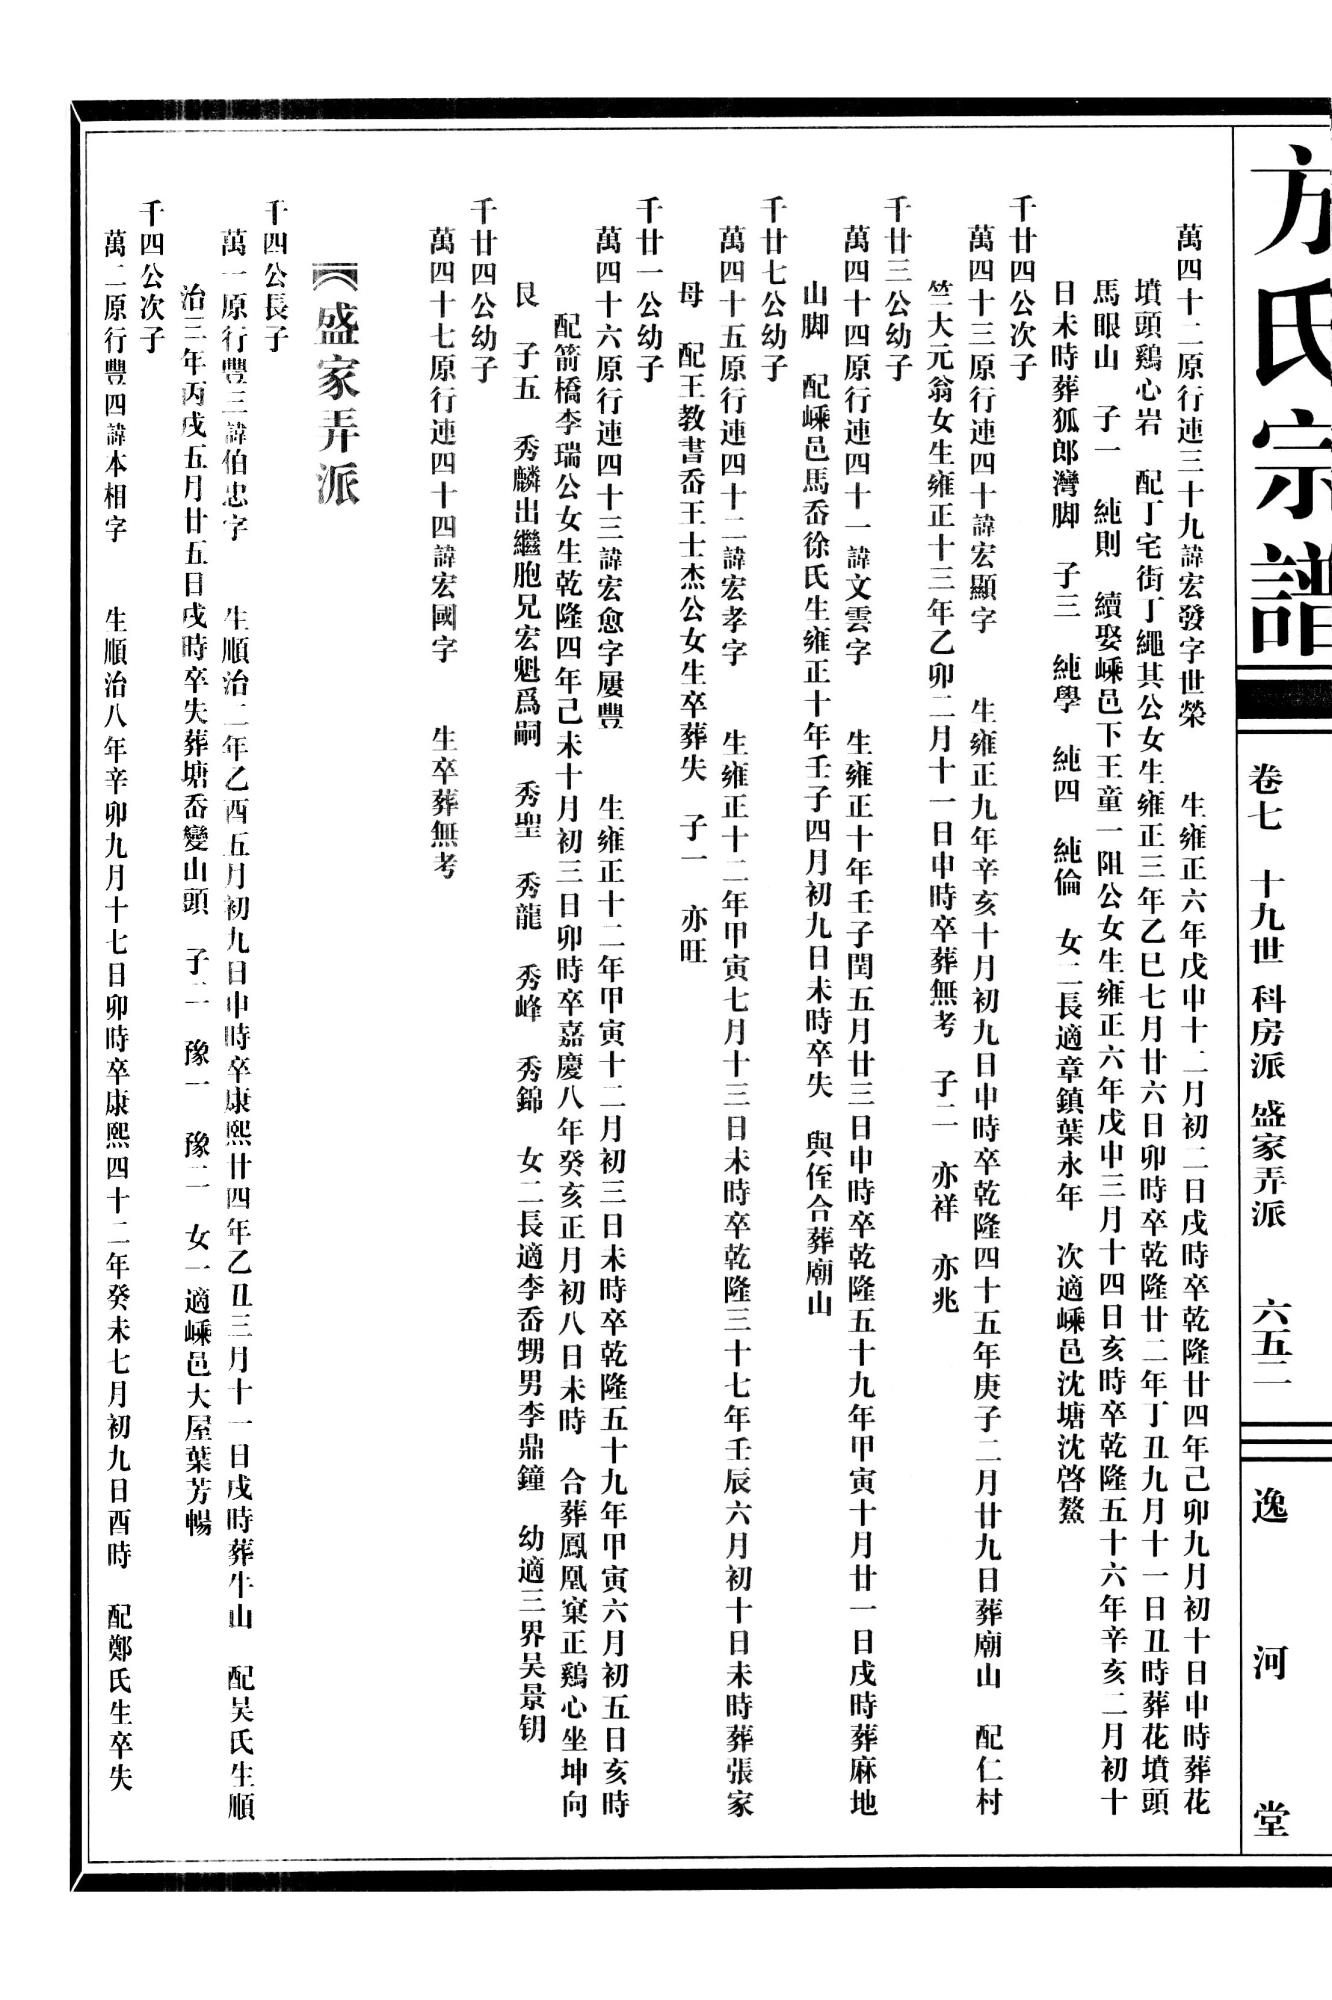 方氏宗譜
卷七 十九世 科房派 盛家弄派 六五二
逸河堂
萬四十二原行連三十九諱宏發字世榮 生雍正六年戊申十二月初二日戌時卒乾隆廿四年己卯九月初十日申時葬花
墳頭鷄心岩 配丁宅街丁繩其公女生雍正三年乙巳七月廿六日卯時卒乾隆廿二年丁丑九月十一日丑時葬花墳頭
馬眼山 子一 純則 續娶嵊邑下王童一阻公女生雍正六年戊申三月十四日亥時卒乾隆五十六年辛亥二月初十
日未時葬狐郎灣脚 子三 純學 純四 純倫 女二長適章鎮葉永年 次適嵊邑沈塘沈啓鰲
千廿四公次子
萬四十三原行連四十諱宏顯字 生雍正九年辛亥十月初九日申時卒乾隆四十五年庚子二月廿九日葬廟山 配仁村
竺大元翁女生雍正十三年乙卯二月十一日申時卒葬無考 子二 亦祥 亦兆
千廿三公幼子
萬四十四原行連四十一諱文雲字 生雍正十年壬子閏五月廿三日申時卒乾隆五十九年甲寅十月廿一日戌時葬麻地
山脚 配嵊邑馬岙徐氏生雍正十年壬子四月初九日未時卒失 與侄合葬廟山
千廿七公幼子
萬四十五原行連四十二諱宏孝字 生雍正十二年甲寅七月十三日未時卒乾隆三十七年壬辰六月初十日未時葬張家
母 配王教書岙王士杰公女生卒葬失 子一 亦旺
千廿一公幼子
萬四十六原行連四十三諱宏愈字屢豐 生雍正十二年甲寅十二月初三日未時卒乾隆五十九年甲寅六月初五日亥時
配箭橋李瑞公女生乾隆四年己未十月初三日卯時卒嘉慶八年癸亥正月初八日未時 合葬鳳凰窠正鷄心坐坤向
艮 子五 秀麟出繼胞兄宏魁爲嗣 秀聖 秀龍 秀峰 秀錦 女二長適李岙甥男李鼎鐘 幼適三界吴景钥
千廿四公幼子
萬四十七原行連四十四諱宏國字 生卒葬無考
盛家弄派
千四公長子
萬一原行豐三諱伯忠字 生順治二年乙酉五月初九日申時卒康熙廿四年乙丑三月十一日戌時葬牛山 配吴氏生順
治三年丙戌五月廿五日戌時卒失葬塘岙變山頭 子二 豫一 豫二 女一適嵊邑大屋葉芳暢
千四公次子
萬二原行豐四諱本相字 生順治八年辛卯九月十七日卯時卒康熙四十二年癸未七月初九日酉時 配鄭氏生卒失